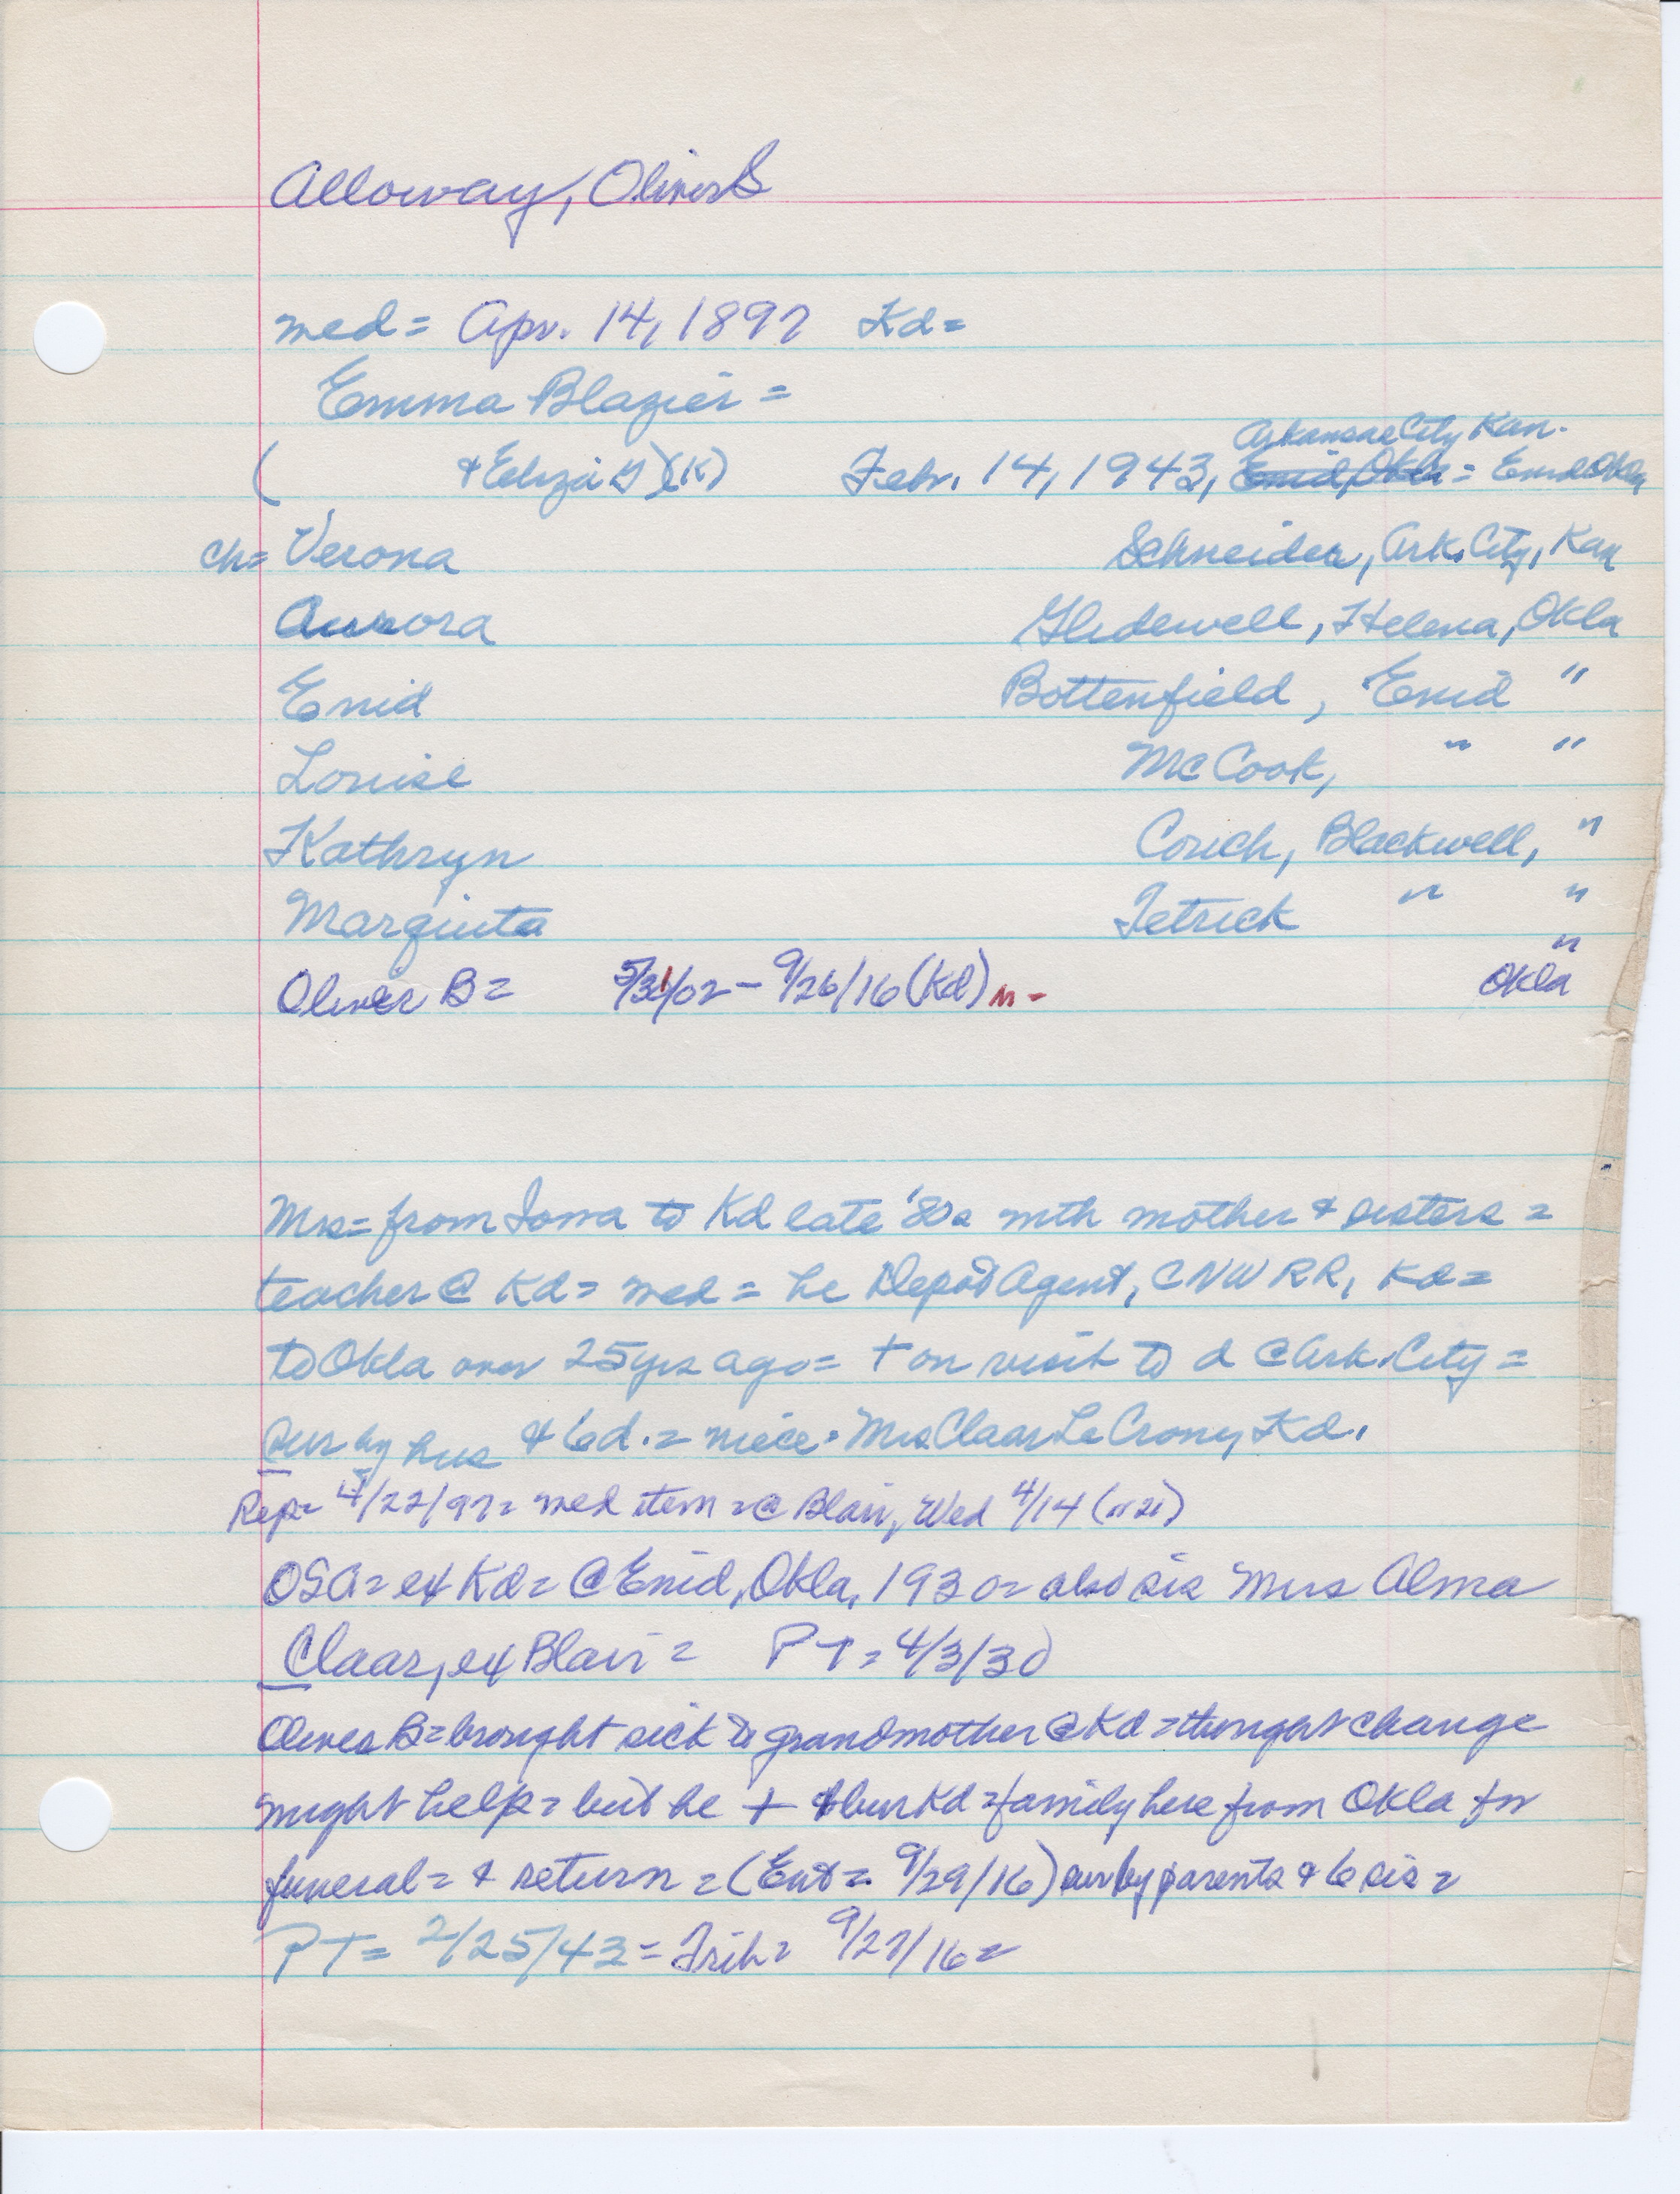 Alloway, Oliver S
med = Apr. 14, 1897 Kd =
Emma Blazier =
Arkansas City Kan.
( & Eliza G)(K) Febr. 14, 1943, Enid, Okla = Enid Okla
ch = Verona Schneider, Ark. City, Kan
Aurora Glidewell, Helena, Okla
Enid Bottenfield, Enid "
Louise McCook, " "
Kathryn Couch, Blackwell, "
Margiuta Tetrick " "
"
Oliver B = 5/31/02 - 9/26/16 (Kd) n - Okla
Mrs = from Iowa to Kd late '80s with mother & sisters =
teacher @ Kd = med = he Depot Agent, CNW RR, Kd =
to Okla over 25 yrs ago = + on visit to d @ Ark. City =
sur by hus & 6 d. = niece = Mrs Claar La Crony, Kd.
Rep = 4/22/97 = med item = @ Blair, Wed 4/14 (n 21)
OSA = ex Kd = @ Enid, Okla, 1930 = also sis Mrs Alma
Claar, ex Blair = PT = 4/3/30
Oliver B = brought sick to grandmother @ Kd = thought change
might help = but he + & bur Kd = family here from Okla for
funeral = & return = (Ent = 9/29/16) sur by parents & 6 sis =
PT = 2/25/43 = Trib = 9/27/16 =